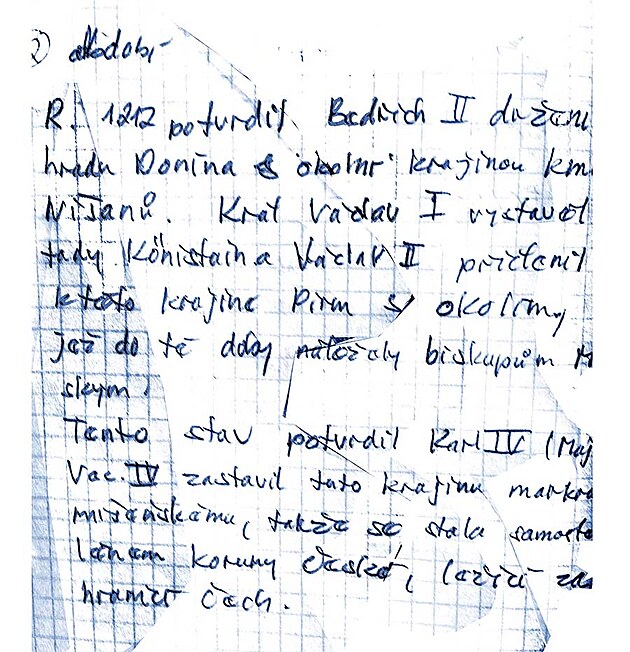 2) období
R. 1212 potvrdil Bedřich II držení
hradu Donína s okolní krajinou km
Nišanů. Král Václav I vystavěl
tady Königstein a Václav II přičlenil
k této krajině Pirnu s okolím,
jež do té doby náležely biskupům M
ským.
Tento stav potvrdil Karl IV (Maj
Vac. IV zastavil tuto krajinu markra
míšeňskému, takže se stala samosta
lénem koruny České, ležící za
hranicí Čech.